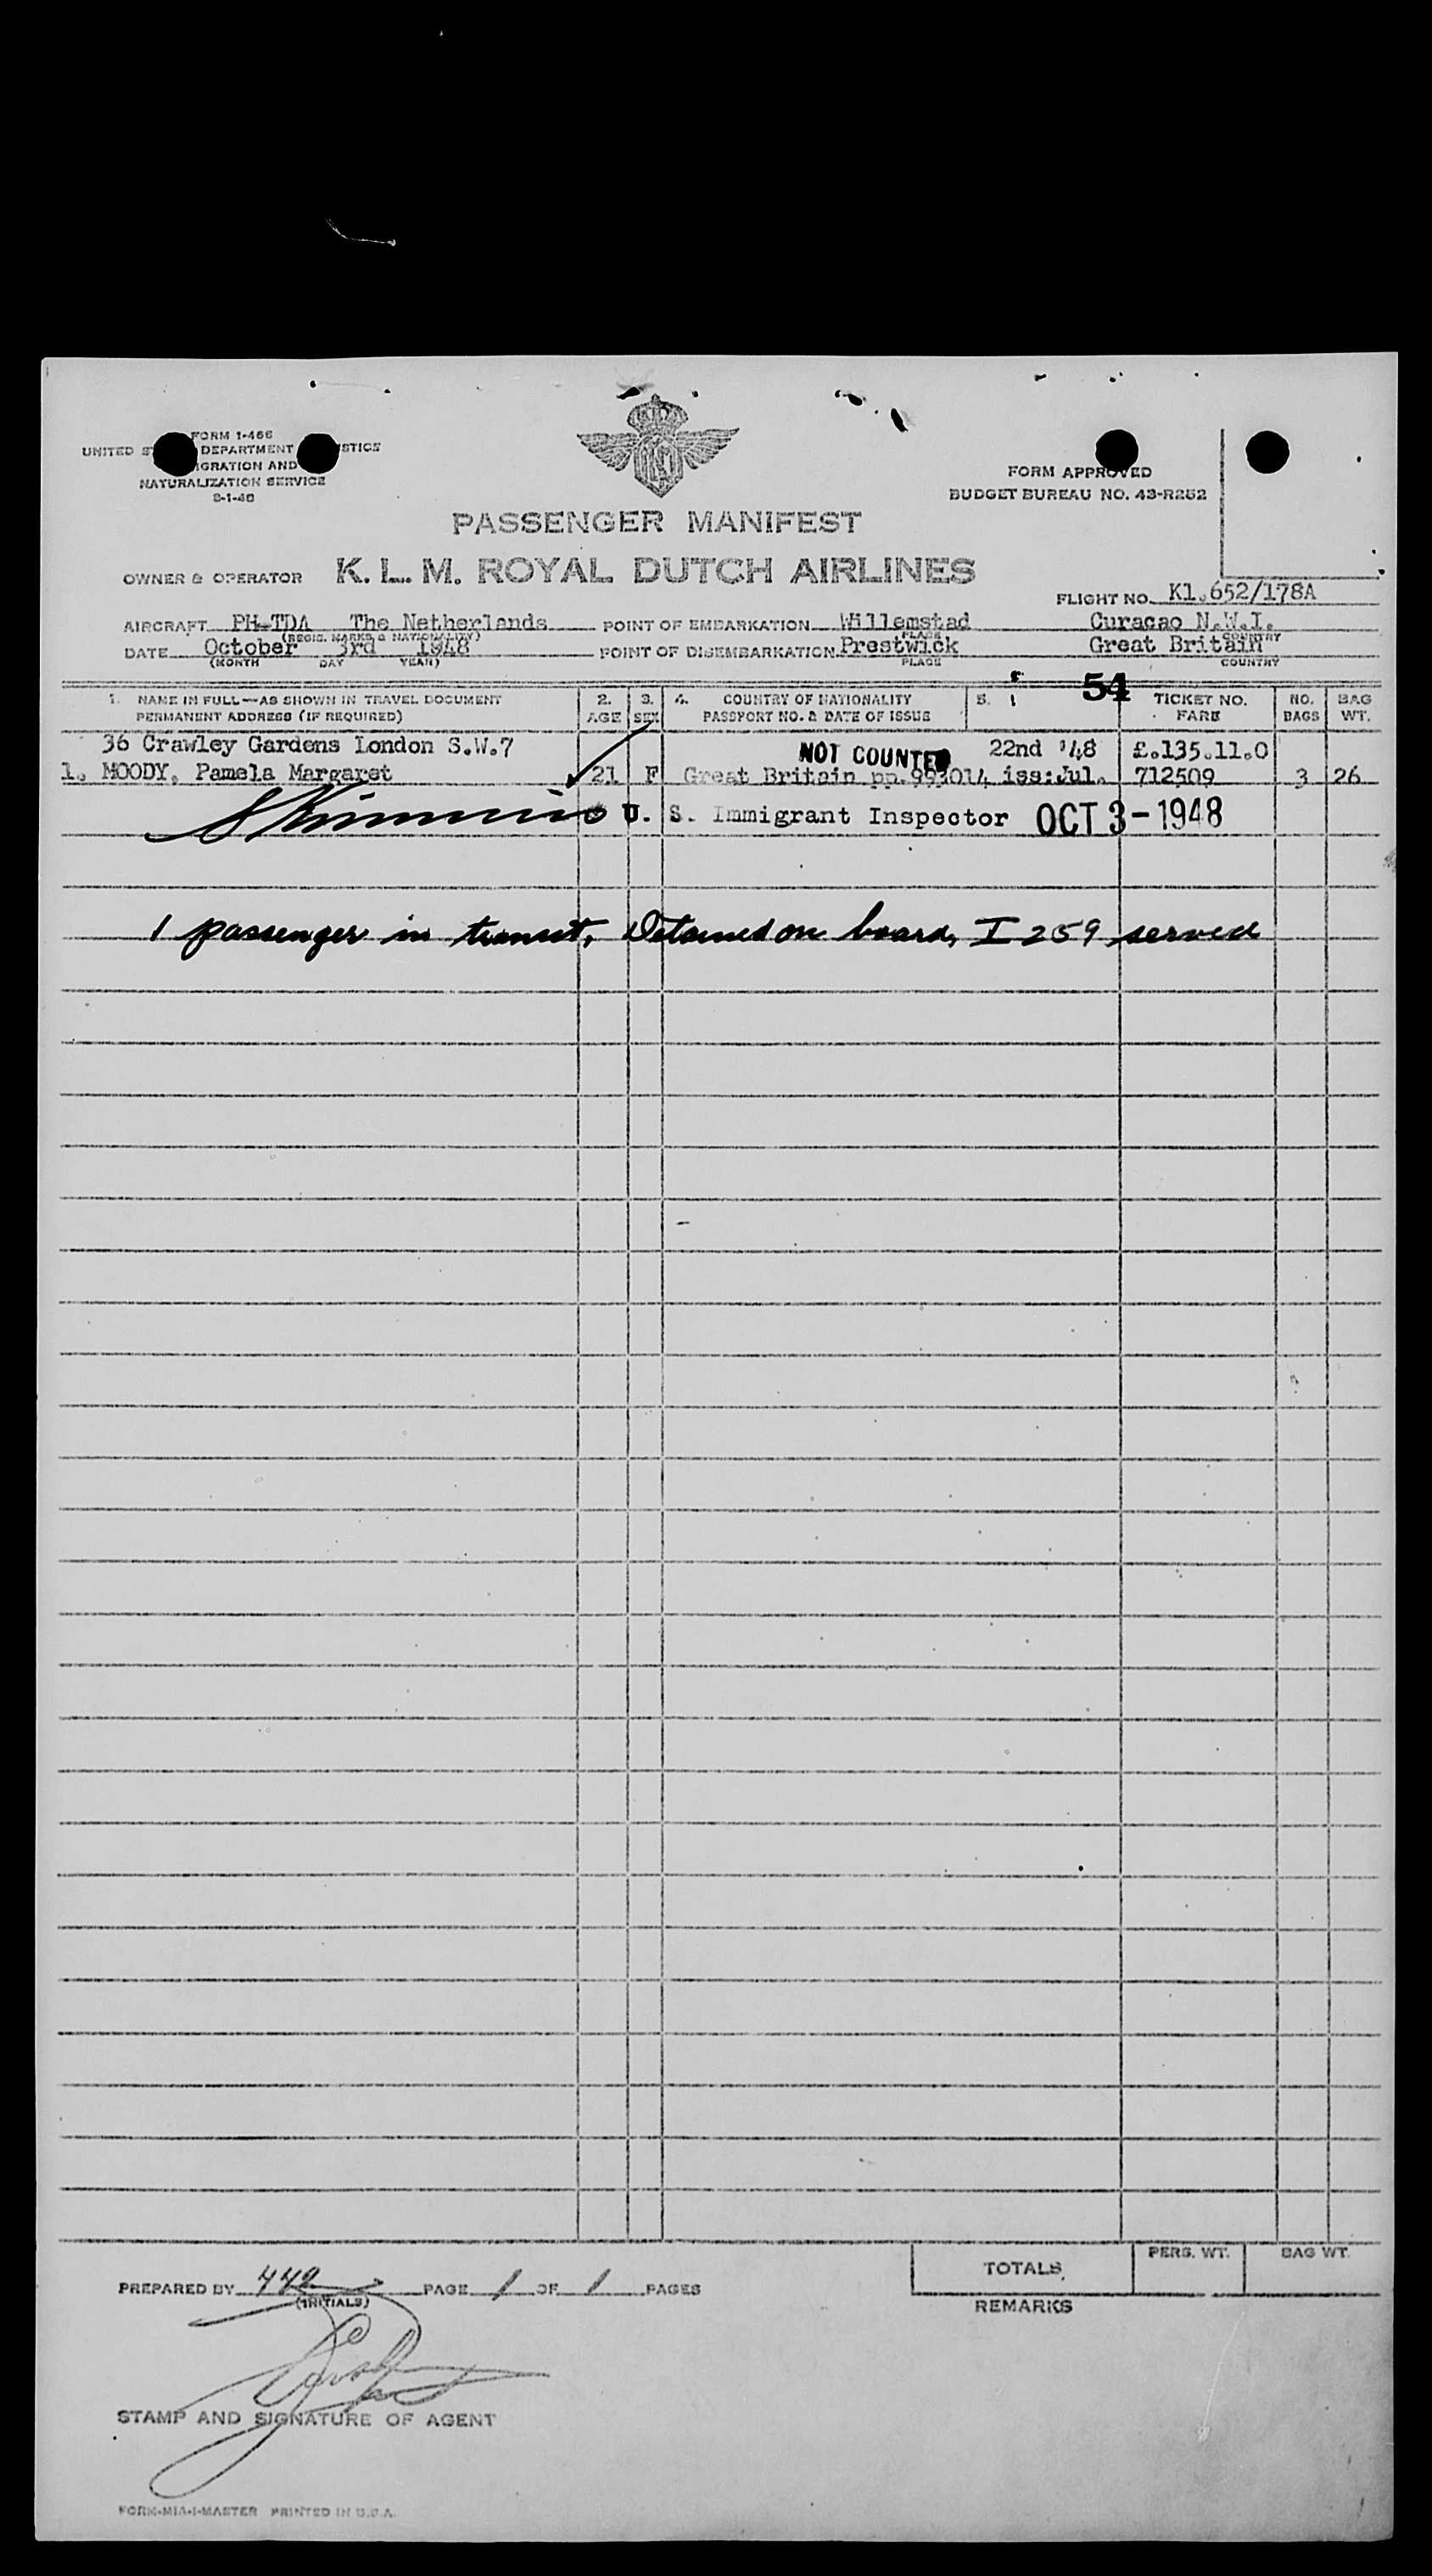 FORM 1-466
UNITED DEPARTMENT
AND
NATURALIZATION SERVICE
FORM APPROVED
BUDGET BUREAU NO. 43-R252
PASSENGER MANIFEST
OWNER & OPERATOR K. L. M. ROYAL DUTCH AIRLINES
FLIGHT NO. Kl.652/178A
AIRCRAFT PH-TDA The Netherlands POINT OF EMBARKATION Willemstad Curacao N.W.I.
(REGIS. MARKS & NATIONALITY) PLACE COUNTRY
DATE October 3rd 1948 POINT OF DISEMBARKATION Prestwick Great Britain
(MONTH DAY YEAR) PLACE COUNTRY
54
1. NAME IN FULL—AS SHOWN IN TRAVEL DOCUMENT 2. 3. 4. COUNTRY OF NATIONALITY 5. TICKET NO. NO. BAG
PERMANENT ADDRESS (IF REQUIRED) AGE SEX PASSPORT NO. & DATE OF ISSUE FARE BAGS WT.
36 Crawley Gardens London S.W.7 NOT COUNTED 22nd '48 £.135.11.0
1. MOODY, Pamela Margaret 21 F Great Britain pp.993014 iss:Jul. 712509 3 26
U. S. Immigrant Inspector OCT 3-1948
1 passenger in transit, Detained on board, I 259 served
TOTALS PERS. WT. BAG WT.
PREPARED BY PAGE 1 OF 1 PAGES
(INITIALS)
REMARKS
STAMP AND SIGNATURE OF AGENT
FORM-MIA-1-MASTER PRINTED IN U.S.A.